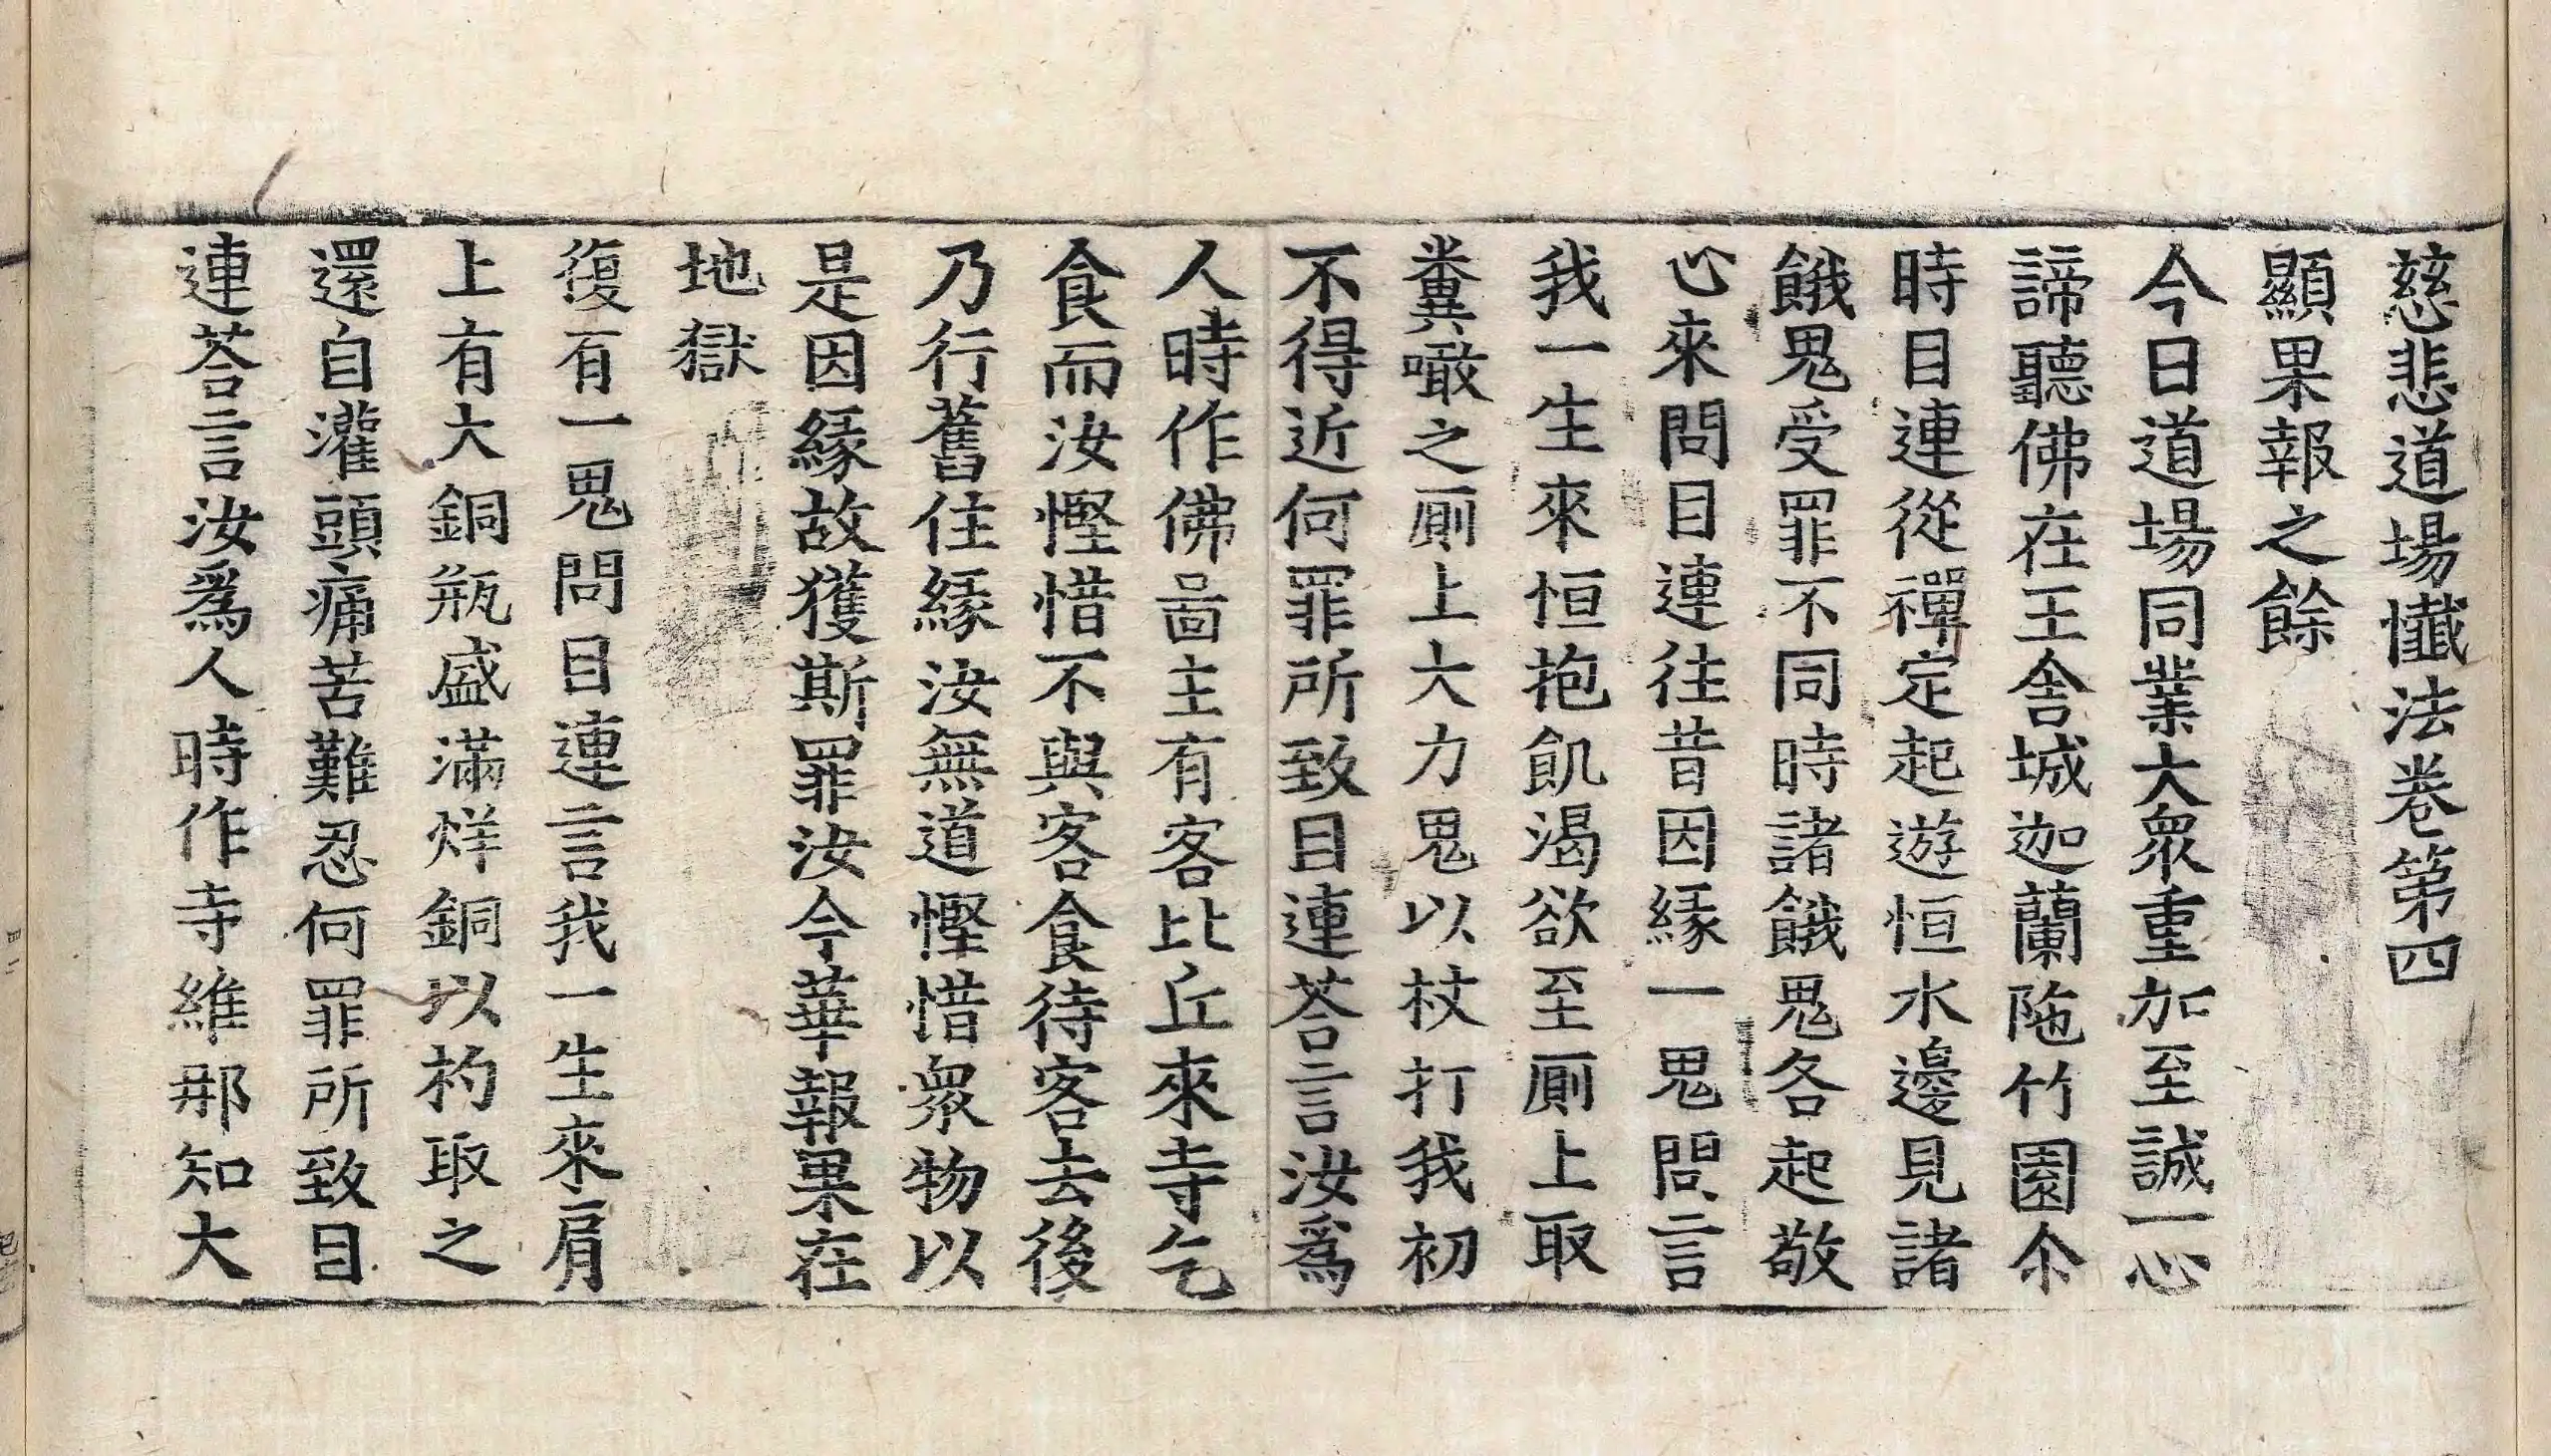 慈悲道場懺法卷第四
顯果報之餘
今日道場同業大衆重加至誠一心
諦聽佛在王舍城迦蘭陁竹園尒
時目連從禪定起遊恒水邊見諸
餓鬼受罪不同時諸餓鬼各起敬
心來問目連往昔因緣一鬼問言
我一生來恒抱飢渴欲至厠上取
糞噉之厠上大力鬼以杖打我初
不得近何罪所致目連荅言汝爲
人時作佛啚主有客比丘來寺乞
食而汝慳惜不與客食待客去後
乃行舊住緣汝無道慳惜衆物以
是因緣故獲斯罪汝今華報果在
地獄
復有一鬼問目連言我一生來肩
上有大銅瓶盛滿烊銅以杓取之
還自灌頭痛苦難忍何罪所致目
連荅言汝爲人時作寺維那知大